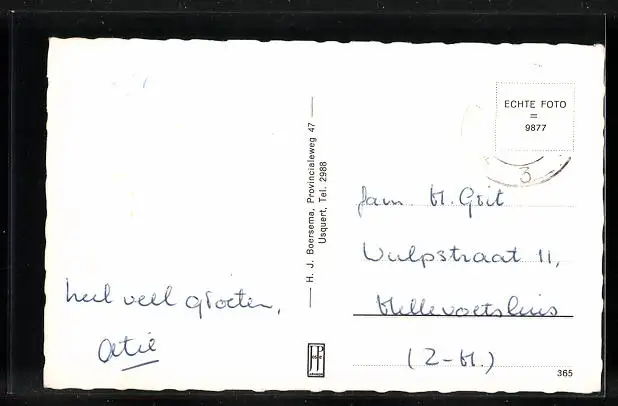 heel veel groeten,
Atie
H. J. Boersema, Provincialeweg 47
Usquert, Tel. 2988
JP
ECHTE FOTO
=
9877
3
Fam. H. Grit
Vulpstraat 11,
Hellevoetsluis
(Z-H.)
365